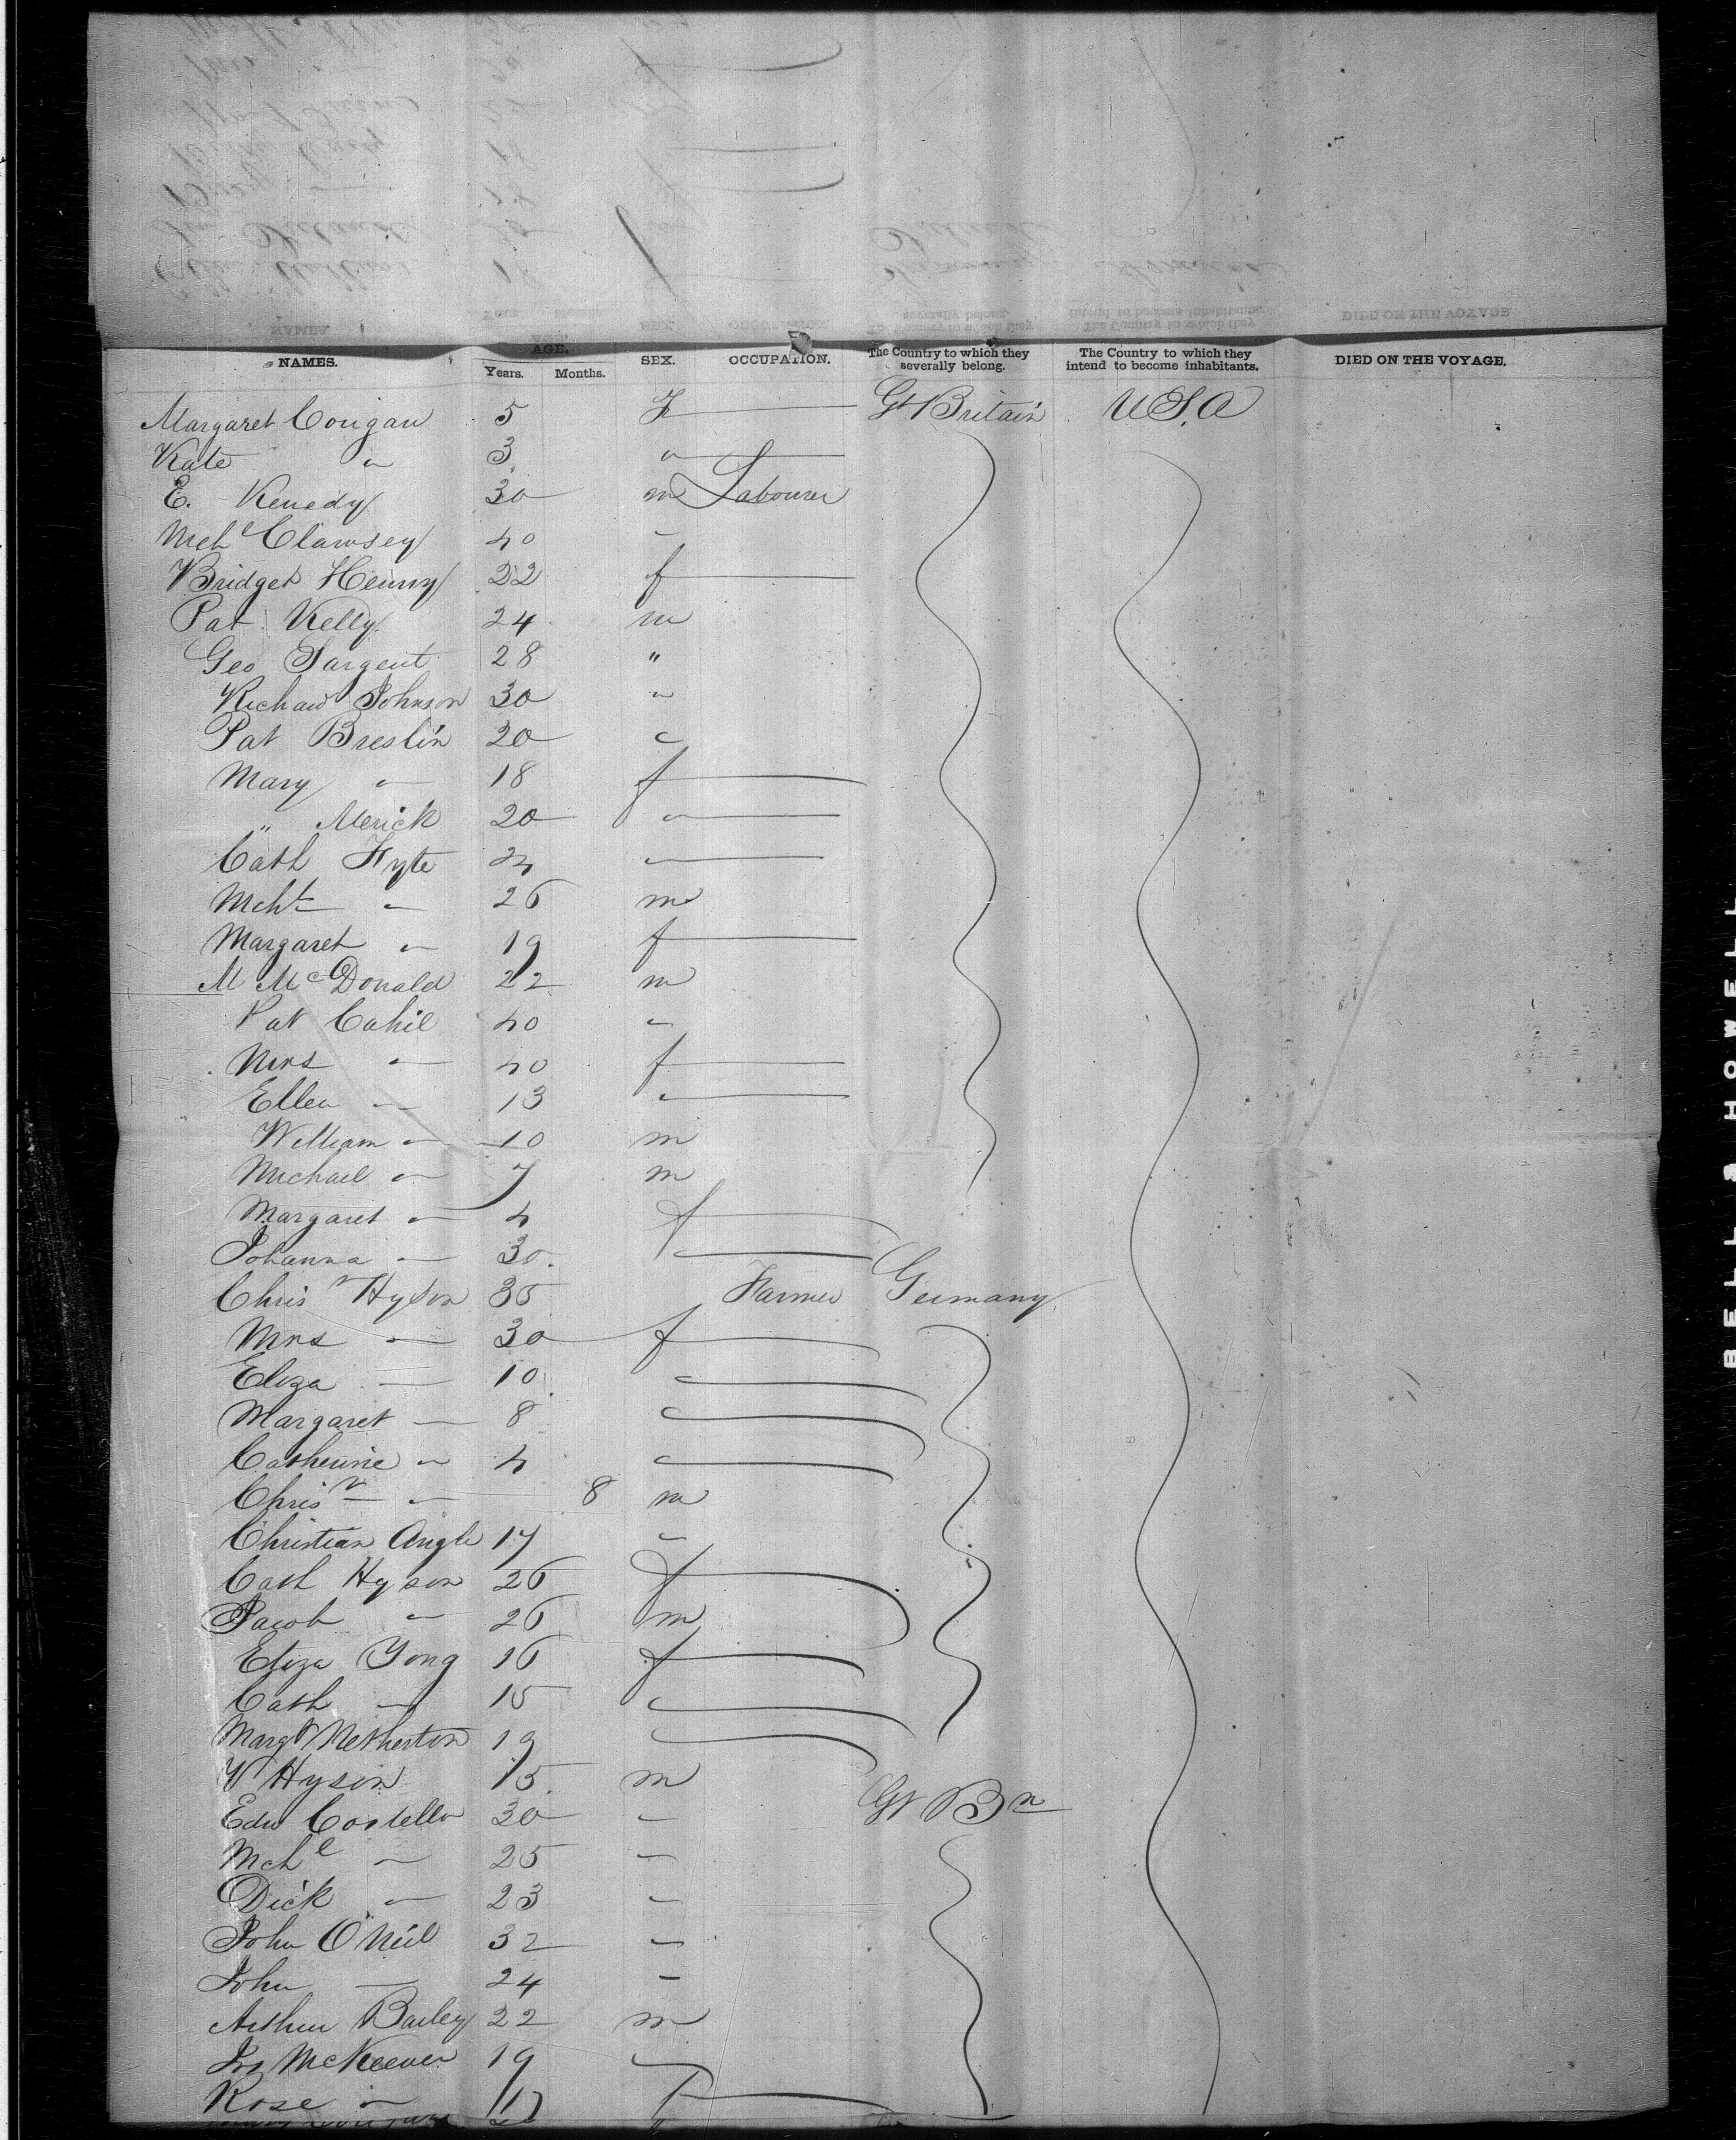 NAMES. AGE. Years. Months. SEX. OCCUPATION. The Country to which they severally belong. The Country to which they intend to become inhabitants. DIED ON THE VOYAGE.
Margaret Corigan 5 F Gt Britain U.S.A
Kate " 3 "
E. Kenedy 30 m Labourer
Mchl Clawsey 40 "
Bridget Henny 22 f
Pat Kelly 24 m
Geo Sargent 28 "
Richard Johnson 30 "
Pat Breslin 20 "
Mary " 18 f
" Merick 20 "
Cath Hyte 24 "
Mcht " 26 m
Margaret " 19 f
M McDonald 22 m
Pat Cahil 40 "
Mrs " 40 f
Ellen " 13 "
William " 10 m
Michael " 7 m
Margaret " 4 f
Johanna " 30. "
Chrisn Hyson 35 Farmer Germany
Mrs " 30 f
Eliza " 10 "
Margaret " 8 "
Catherine " 4 "
Chrisn " 8 m
Christian Angle 17 "
Cath Hyson 26 f
Jacob " 26 m
Eliza Yong 16 f
Cath " 15 "
Margt Netherton 19 "
V Hyson 15 m
Edw Costello 30 " Gt Bn
Mchl " 25 "
Dick " 23 "
John O'Neil 32 "
John " 24 "
Arthur Bailey 22 m
Jas McKeever 19 "
Rose " 17 f
BELL & HOWELL